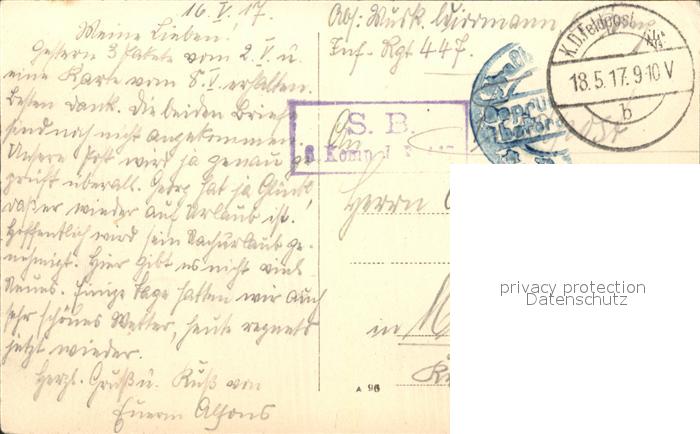 16. V. 17.
Meine Lieben!
Gestern 3 Pakete vom 2. V. u.
eine Karte vom 8. V. erhalten.
Besten Dank. Die beiden Briefe
sind noch nicht angekommen.
Unsere Post wird ja genau ge-
prüft überall. Georg hat ja Glück,
daß er wieder auf Urlaub ist.
Hoffentlich wird sein Nachurlaub ge-
nehmigt. Hier gibt es nicht viel
Neues. Einige Tage hatten wir auch
sehr schönes Wetter, heute regnets
jetzt wieder.
Herzl. Gruß u. Kuß von
Euerm Alfons
Abs: Musk.
Inf-Rgt 447.
S. B.
Komp.
K.D. Feldpost
18.5.17. 9-10 V
b
An
Herrn
in M
A 96
privacy protection
Datenschutz